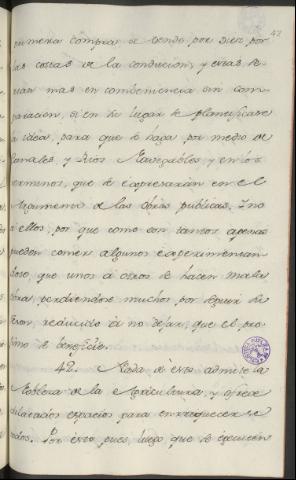 42
primera compra se vende por diez por
las costas de la conducion, y estas se-
rian mas en combeniencia sin com-
paracion, si en su lugar se planificase
la idea, para que se haga por medio de
Canales, y Rios Navegables y en los
terminos, que se expresarán en el
Argumento de las Obras publicas. Y no
á ellos, por que como son tantos apenas
pueden comer algunos experimentan
dose, que unos á otros se hacen mala
obra, perdiendose muchos por seguir su
teson, reducido á no dejar, que el pro-
ximo se beneficie.
42. Nada de esto admite la
Nobleza de la Agricultura, y ofrece
dilatados espacios para enrriquecerse
todos. Por esto pues, luego que se executen